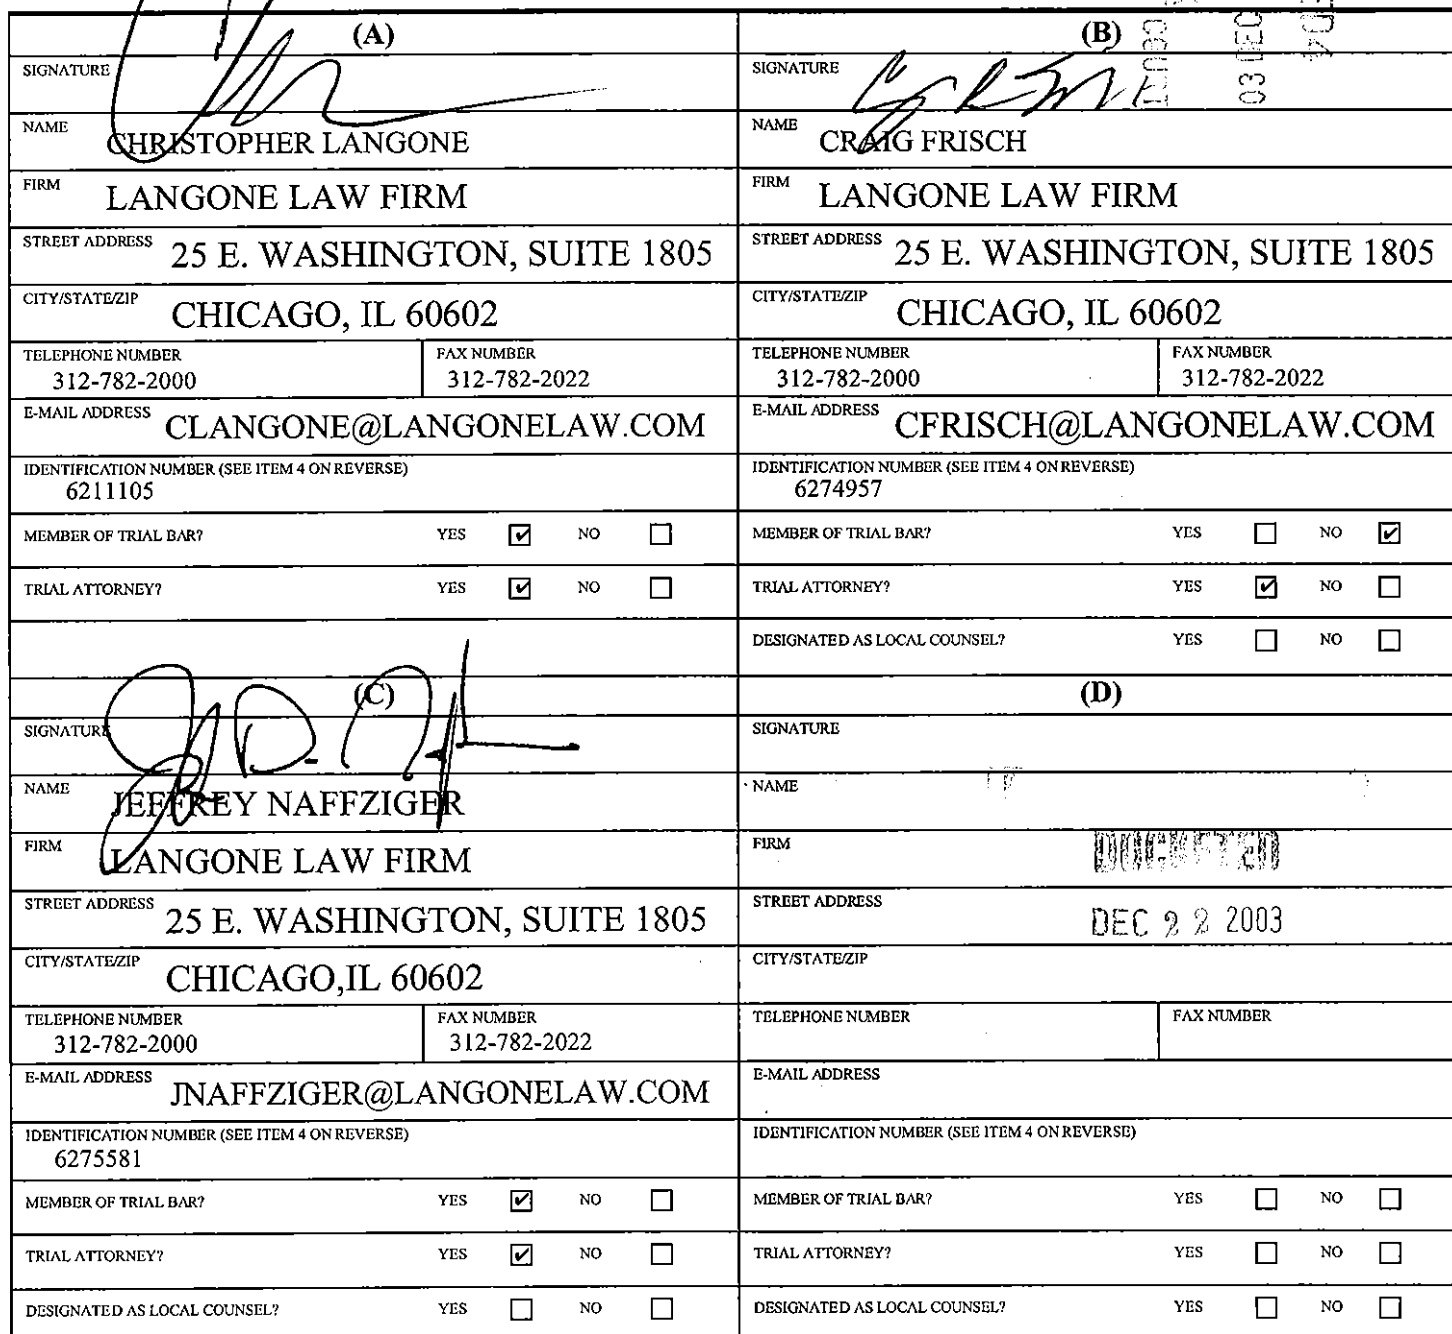 (A)
SIGNATURE
NAME CHRISTOPHER LANGONE
FIRM LANGONE LAW FIRM
STREET ADDRESS 25 E. WASHINGTON, SUITE 1805
CITY/STATE/ZIP CHICAGO, IL 60602
TELEPHONE NUMBER FAX NUMBER
312-782-2000 312-782-2022
E-MAIL ADDRESS CLANGONE@LANGONELAW.COM
IDENTIFICATION NUMBER (SEE ITEM 4 ON REVERSE)
6211105
MEMBER OF TRIAL BAR? YES ☑ NO ☐
TRIAL ATTORNEY? YES ☑ NO ☐
(B)
SIGNATURE
03 DEC
NAME CRAIG FRISCH
FIRM LANGONE LAW FIRM
STREET ADDRESS 25 E. WASHINGTON, SUITE 1805
CITY/STATE/ZIP CHICAGO, IL 60602
TELEPHONE NUMBER FAX NUMBER
312-782-2000 312-782-2022
E-MAIL ADDRESS CFRISCH@LANGONELAW.COM
IDENTIFICATION NUMBER (SEE ITEM 4 ON REVERSE)
6274957
MEMBER OF TRIAL BAR? YES ☐ NO ☑
TRIAL ATTORNEY? YES ☑ NO ☐
DESIGNATED AS LOCAL COUNSEL? YES ☐ NO ☐
(C)
SIGNATURE
NAME JEFFREY NAFFZIGER
FIRM LANGONE LAW FIRM
STREET ADDRESS 25 E. WASHINGTON, SUITE 1805
CITY/STATE/ZIP CHICAGO,IL 60602
TELEPHONE NUMBER FAX NUMBER
312-782-2000 312-782-2022
E-MAIL ADDRESS JNAFFZIGER@LANGONELAW.COM
IDENTIFICATION NUMBER (SEE ITEM 4 ON REVERSE)
6275581
MEMBER OF TRIAL BAR? YES ☑ NO ☐
TRIAL ATTORNEY? YES ☑ NO ☐
DESIGNATED AS LOCAL COUNSEL? YES ☐ NO ☐
(D)
SIGNATURE
NAME
FIRM DOCKETED
STREET ADDRESS DEC 22 2003
CITY/STATE/ZIP
TELEPHONE NUMBER FAX NUMBER
E-MAIL ADDRESS
IDENTIFICATION NUMBER (SEE ITEM 4 ON REVERSE)
MEMBER OF TRIAL BAR? YES ☐ NO ☐
TRIAL ATTORNEY? YES ☐ NO ☐
DESIGNATED AS LOCAL COUNSEL? YES ☐ NO ☐